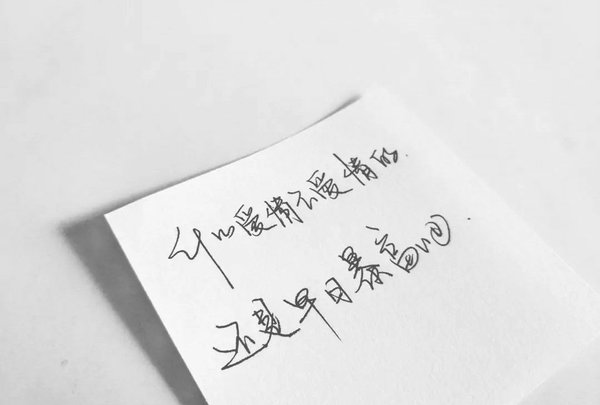 什么爱情不爱情的.
还是早日暴富吧.